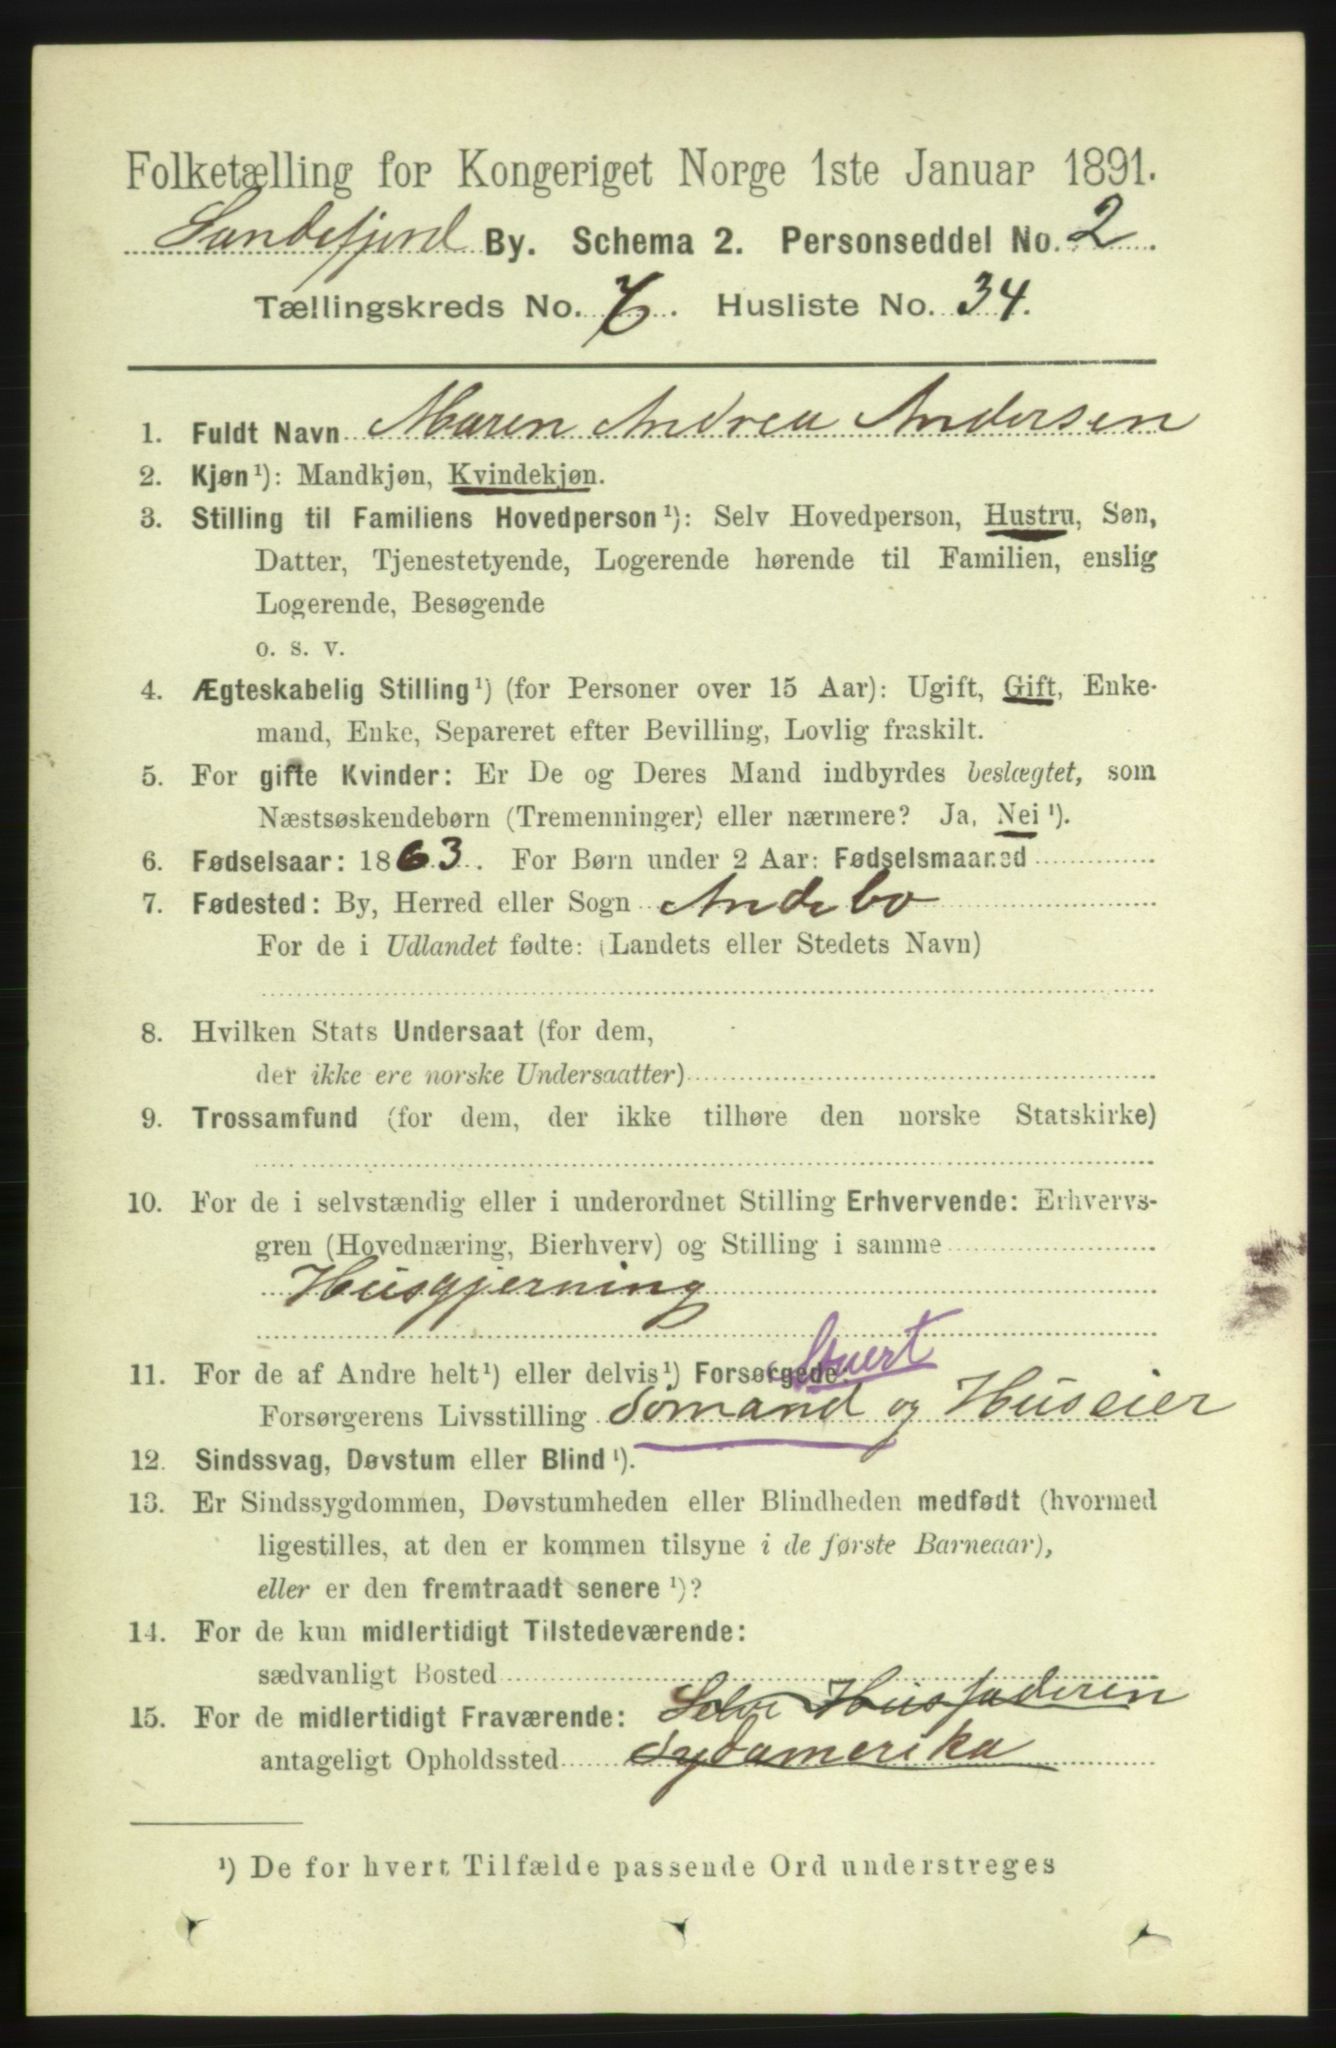 Folketælling for Kongeriget Norge 1ste Januar 1891.
Sandefjord By. Schema 2. Personseddel No. 2.
Tællingskreds No. 7. Husliste No. 34.
1. Fuldt Navn Maren Andrea Andersen
2. Kjøn ¹): Mandkjøn, Kvindekjøn.
3. Stilling til Familiens Hovedperson ¹): Selv Hovedperson, Hustru, Søn,
Datter, Tjenestetyende, Logerende hørende til Familien, enslig
Logerende, Besøgende
o. s. v.
4. Ægteskabelig Stilling ¹) (for Personer over 15 Aar): Ugift, Gift, Enke-
mand, Enke, Separeret efter Bevilling, Lovlig fraskilt.
5. For gifte Kvinder: Er De og Deres Mand indbyrdes beslægtet, som
Næstsøskendebørn (Tremenninger) eller nærmere? Ja, Nei ¹).
6. Fødselsaar: 1863. For Børn under 2 Aar: Fødselsmaaned
7. Fødested: By, Herred eller Sogn Andebo
For de i Udlandet fødte: (Landets eller Stedets Navn)
8. Hvilken Stats Undersaat (for dem,
der ikke ere norske Undersaatter)
9. Trossamfund (for dem, der ikke tilhøre den norske Statskirke)
10. For de i selvstændig eller i underordnet Stilling Erhvervende: Erhvervs-
gren (Hovednæring, Bierhverv) og Stilling i samme
Husgjerning
Stuert
11. For de af Andre helt ¹) eller delvis ¹) Forsørgede:
Forsørgerens Livsstilling Sømand og Huseier
12. Sindssvag, Døvstum eller Blind ¹).
13. Er Sindssygdommen, Døvstumheden eller Blindheden medfødt (hvormed
ligestilles, at den er kommen tilsyne i de første Barneaar),
eller er den fremtraadt senere ¹)?
14. For de kun midlertidigt Tilstedeværende:
sædvanligt Bosted
15. For de midlertidigt Fraværende: Selve Husfaderen
antageligt Opholdssted Sydamerika
¹) De for hvert Tilfælde passende Ord understreges